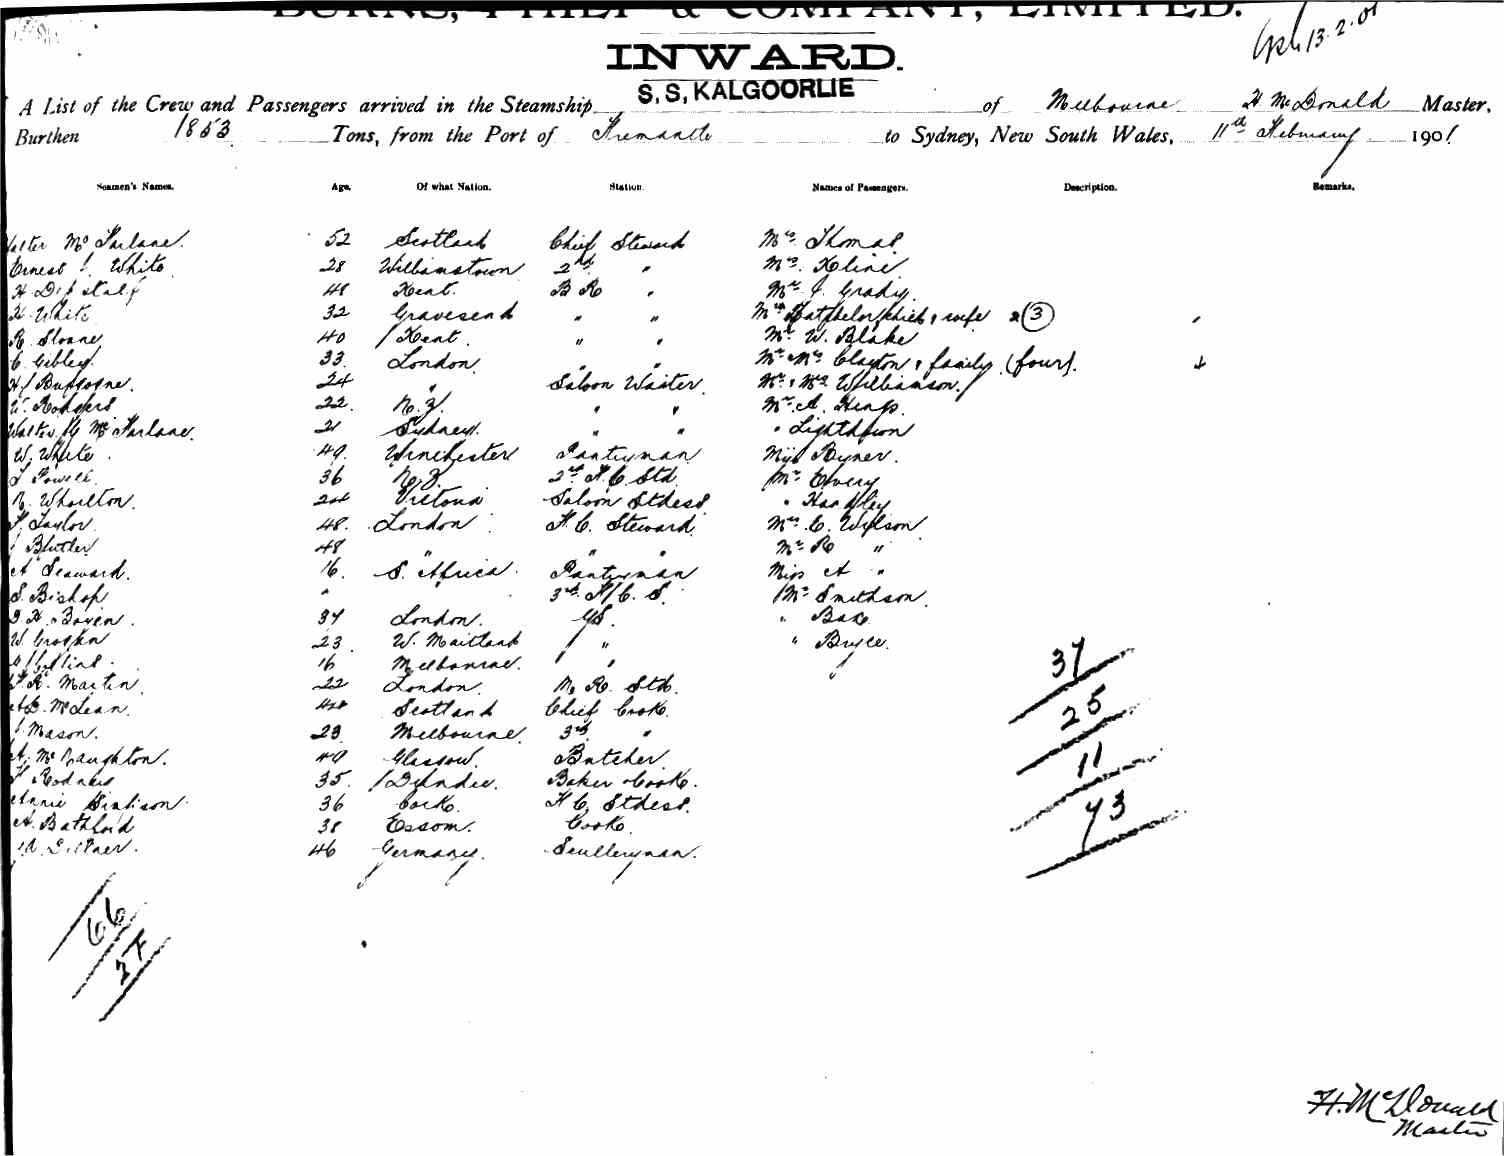 BURNS, PHILP & COMPANY, LIMITED.
13.2.01
INWARD.
S.S. KALGOORLIE
A List of the Crew and Passengers arrived in the Steamship of Melbourne H McDonald Master,
Burthen 1853 Tons, from the Port of Fremantle to Sydney, New South Wales, 11th February 1901
Seamen's Names. Age. Of what Nation. Station. Names of Passengers. Description. Remarks.
Walter McFarlane. 52 Scotland Chief Steward Mrs. Thomas
Ernest White 28 Williamstown 2nd " Mrs. Kline
H 48 Kent. B R " Mr J. Grady
H. White 32 Gravesend " " wife (3)
R. Sloane 40 Kent. " " Mr. W. Blake
C. Gibley. 33. London. " " Mr & Mrs Clayton & family (four).
24 " Saloon Waiter Mr. & Mrs. Williamson.
W. Rodgers 22. N.Z. " " Mr. A. Heaps.
Walter McFarlane. 21 Sydney. " " "
W. White. 49. Winchester Pantryman Miss Ryner.
Powell. 36 N.Z. 2nd F.C. Std. Mr Emery
Whorlton. 24 Victoria Saloon Stdess " Handley
Taylor. 48. London F.C. Steward. Mrs. C. Wilson
Butler 48 " " " Mr R "
A Seaward. 16. S. Africa. Pantryman Miss A "
S. Bishop " 3rd F/C. S. Mr Smithson.
H. Boven. 34 London. G.S. " Bake
W. 23. W. Maitland " " Bryce.
16 Melbourne. "
R. Martin 22 London. M. R. Std.
McLean. 40 Scotland Chief Cook.
Mason. 23 Melbourne 3rd "
A. McNaughton. 49 Glasgow. Butcher.
Rodney 35. Dundee. Baker & Cook.
Annie 36 Cork. F C. Stdess.
A. Bathford 38 Essom. Cook
46 Germany. Sculleryman.
37
25
11
73
66
27
H. McDonald
Master